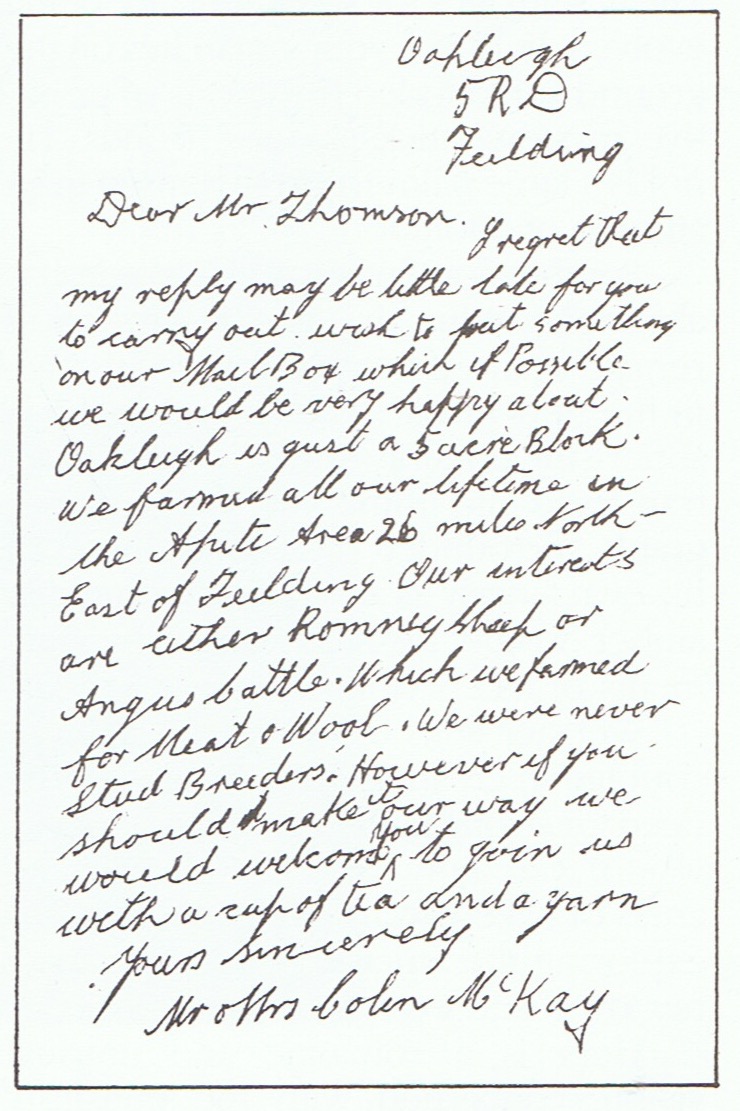 Oakleigh
5 R D
Feilding
Dear Mr Thomson.
I regret that
my reply may be little late for you
to carry out. wish to put something
on our Mail Box which if Possible
we would be very happy about.
Oakleigh is just a 5 acre Block.
We farmed all our lifetime in
the Apiti Area 26 miles North-
East of Feilding. Our interests
are either Romney Sheep or
Angus Cattle. Which we farmed
for Meat & Wool. We were never
Stud Breeders. However if you
should make it our way we
would welcome you to join us
with a cup of tea and a yarn
Yours Sincerely
Mr & Mrs Colin McKay